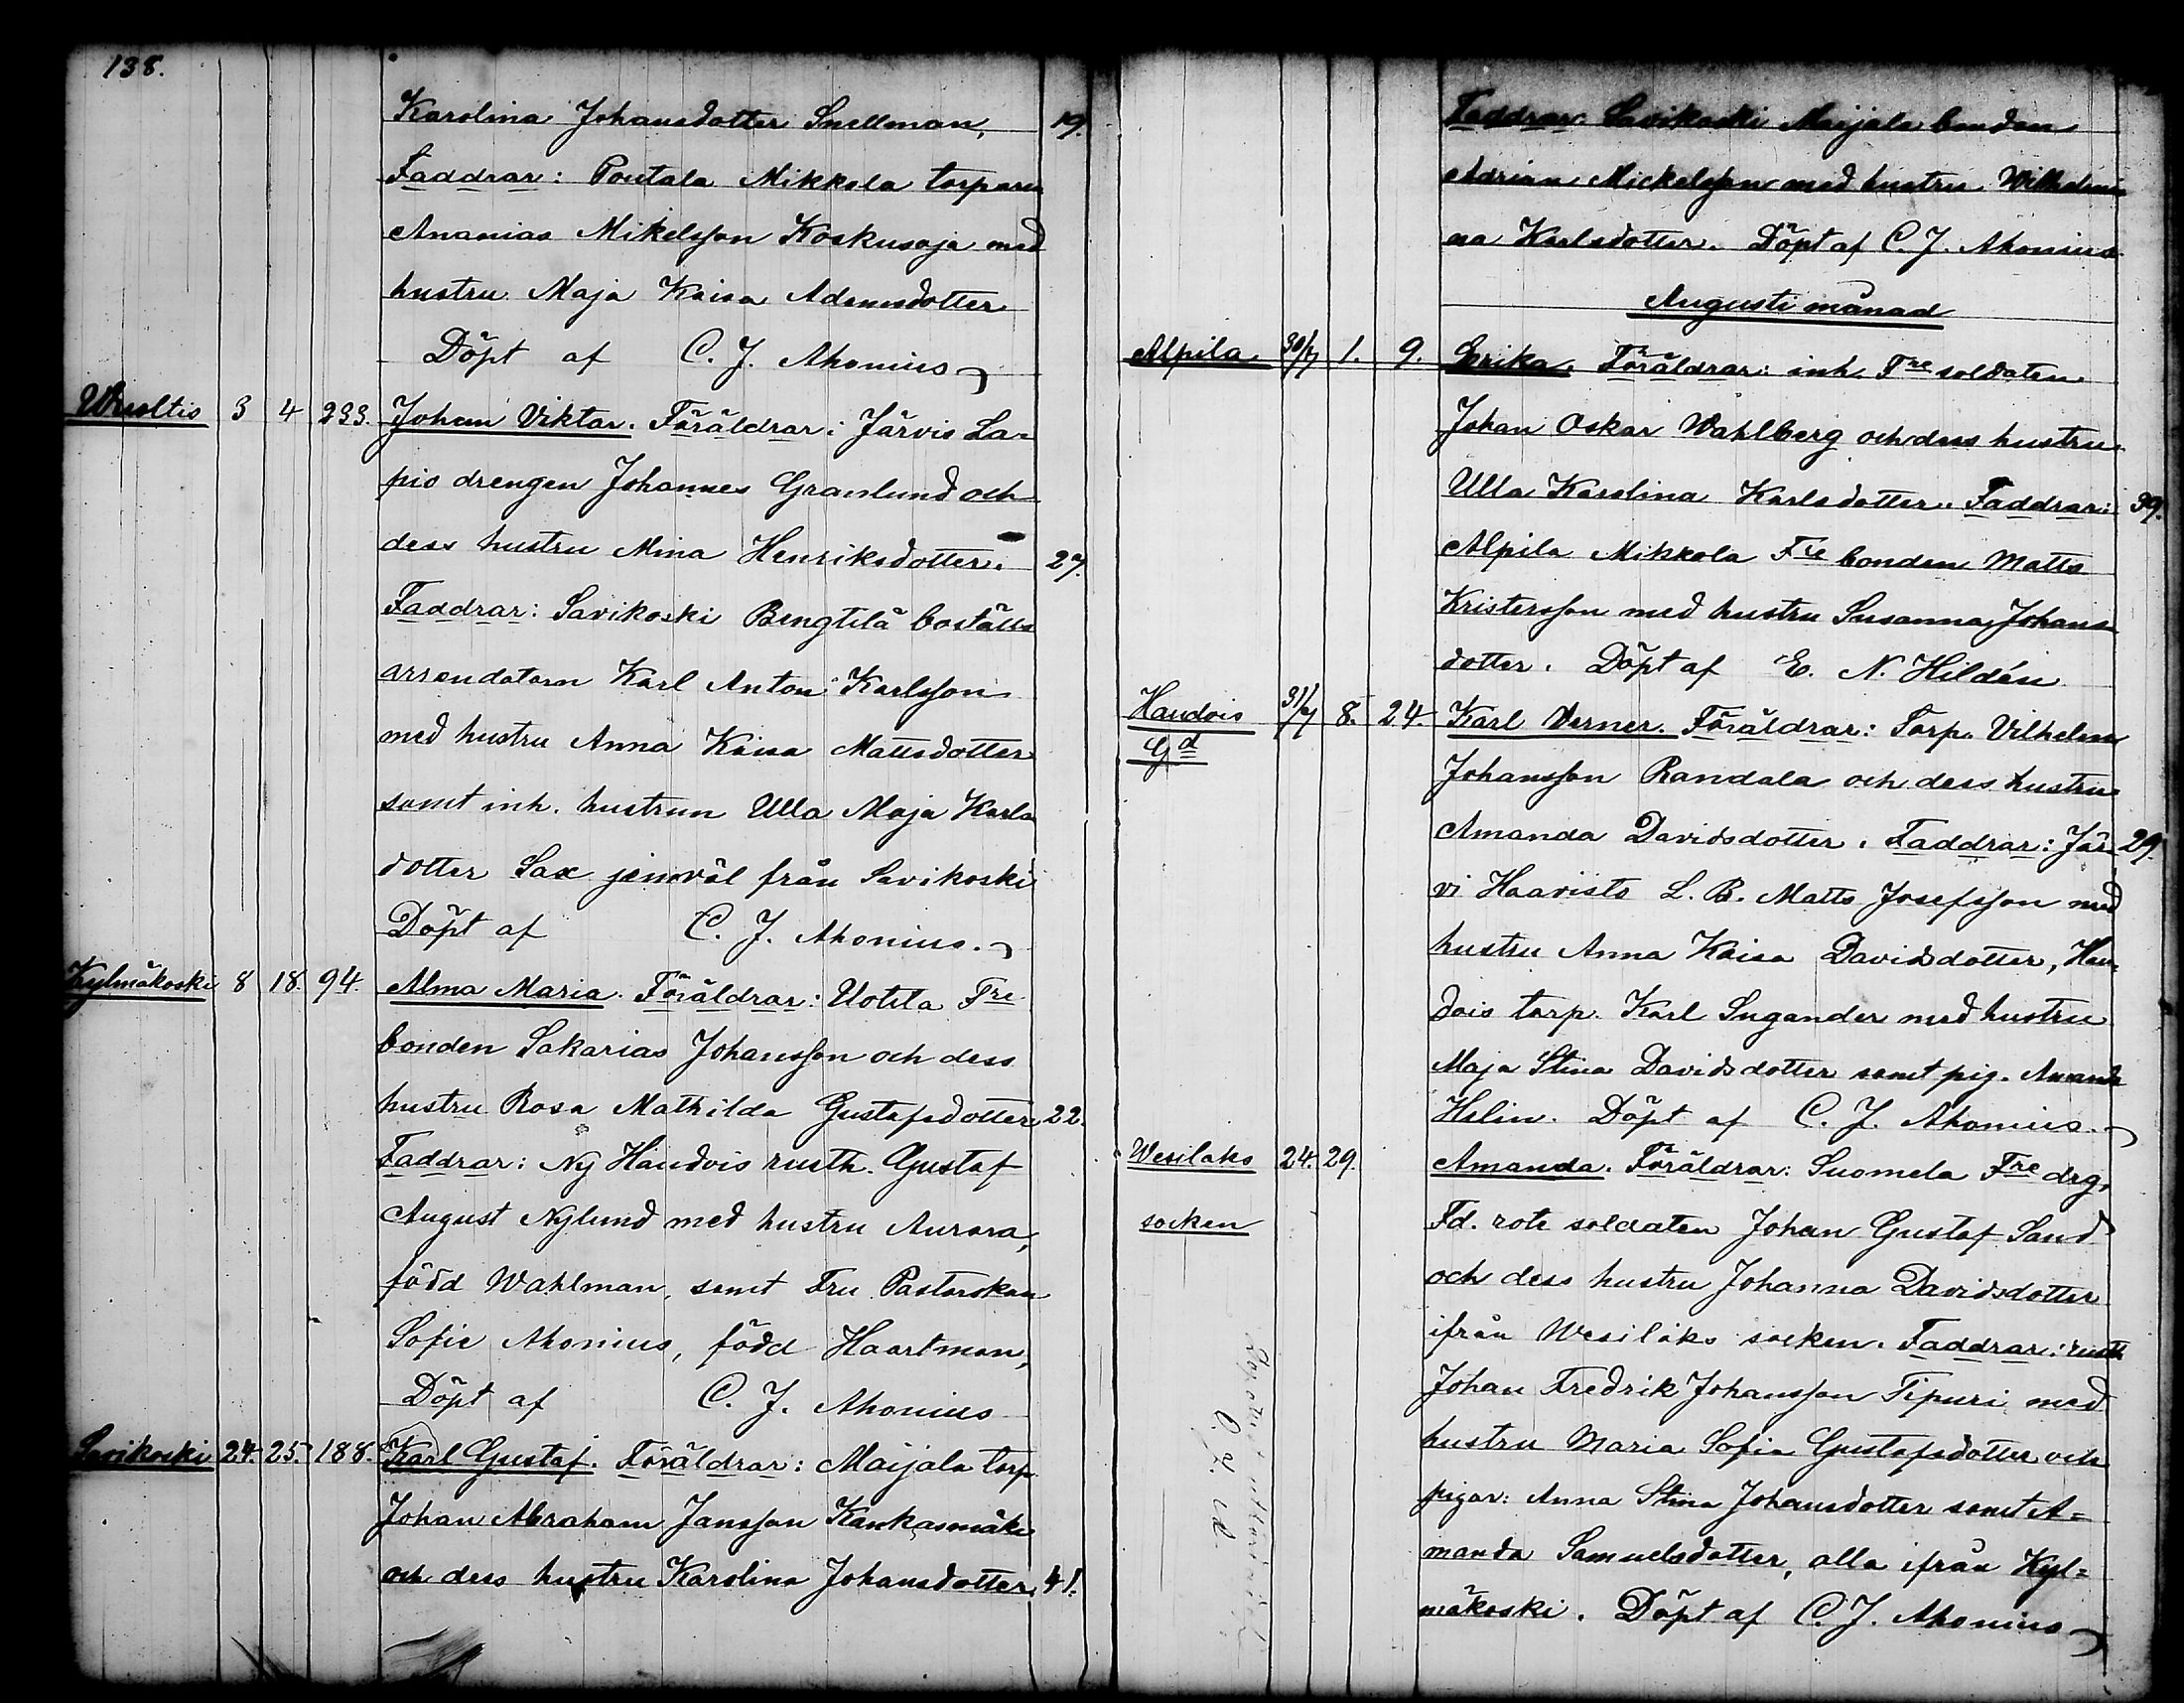 138.
Karolina Johansdotter Snellman, 19.
Faddrar: Poutala Mikkola torparn
Ananias Mikelsson Koskusoja med
hustru Maja Kaisa Adamsdotter
Döpt af C. J. Ahonius
3 4 233. Johan Viktor. Föräldrar: Järvis La-
pio drengen Johannes Granlund och
dess hustru Mina Henriksdotter. 27.
Faddrar: Savikoski Bengtilä boställs
arrendatorn Karl Anton Karlsson
med hustru Anna Kaisa Mattsdotter
samt inh. hustrun Ulla Maja Karls
dotter Sax jemväl från Savikoski
Döpt af C. J. Ahonius.
Kylmäkoski 8 18. 94. Alma Maria. Föräldrar: Uotila Fre
bonden Sakarias Johansson och dess
hustru Rosa Mathilda Gustafsdotter 22.
Faddrar: Ny Haudois rusth. Gustaf
August Nylund med hustru Aurora,
född Wahlman, samt Fru Pastorskan
Sofie Ahonius, född Haartman,
Döpt af C. J. Ahonius
Savikoski 24. 25. 188. Karl Gustaf. Föräldrar: Maijala torp.
Johan Abraham Jansson Kankasmäki
och dess hustru Karolina Johansdotter. 41.
Faddrar: Savikoski Maijala bonden
Adrian Mickelsson med hustru Wilhelmi
na Karlsdotter. Döpt af C. J. Ahonius
Augusti månad
Alpila. 30/7 1. 9. Erika. Föräldrar: inh. Fre soldaten
Johan Oskar Wahlberg och dess hustru
Ulla Karolina Karlsdotter. Faddrar: 39.
Alpila Mikkola Fre bonden Matts
Kristersson med hustru Susanna Johans
dotter. Döpt af E. N. Hildén
Haudois 31/7 8. 24. Karl Verner. Föräldrar: Torp. Vilhelm
Gd
Johansson Randala och dess hustru
Amanda Davidsdotter. Faddrar: Jär- 29.
vi Haavisto L. B. Matts Josefsson med
hustru Anna Kaisa Davidsdotter, Hau-
dois torp. Karl Sugander med hustru
Maja Stina Davidsdotter samt pig. Amanda
Helin. Döpt af C. J. Ahonius.
Wesilaks 24. 29. Amanda. Föräldrar: Suomela Fre drg,
socken Fd. rote soldaten Johan Gustaf Sand
och dess hustru Johanna Davidsdotter
ifrån Wesilaks socken. Faddrar: rusth
Johan Fredrik Johansson Tipuri med
hustru Maria Sofia Gustafsdotter och
pigor: Anna Stina Johansdotter samt A=
manda Samuelsdotter, alla ifrån Kyl=
mäkoski. Döpt af C. J. Ahonius